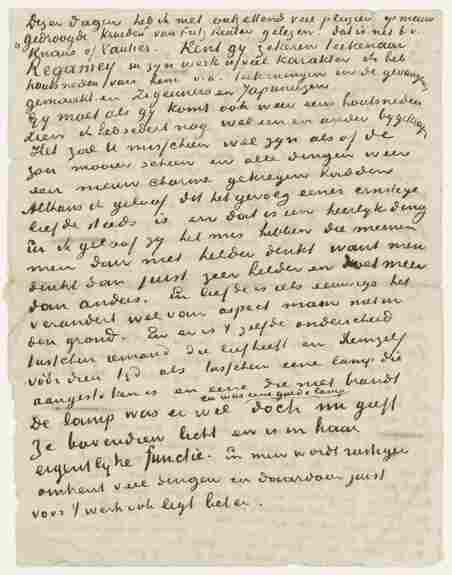 Dezer dagen heb ik met ontzettend veel plezier opnieuw
„Gedroogde kruiden” van Fritz Reuter gelezen. dat is net b.v.
Knaus of Vautier. Kent gij zekeren teekenaar
Regamey in zijn werk is veel karakter ik heb
houtsneden van hem o.a. teekeningen in de gevangenis
gemaakt en Zigeuners en Japaneezen.
Gij moet als gij komt ook weer eens houtsneden
zien ik heb sedert nog wel een en ander bijgekregen
Het zal U misschien wel zijn als of de
zon mooier scheen en alle dingen weer
een nieuw charme gekregen hadden
Althans ik geloof dit het gevolg eener ernstige
liefde steeds is en dat is een heerlijk ding
En ik geloof zij het mis hebben die meenen
men dan niet helder denkt want men
denkt dan juist zeer helder en doet meer
dan anders. En liefde is iets eeuwigs het
verandert wel van aspect maar niet in
den grond. En er is 't zelfde onderscheid
tusschen iemand die liefheeft en denzelf
vóór dien tijd als tusschen eene lamp die
aangestoken is en eene die niet brandt
en was eene goede lamp
de lamp was er wel doch nu geeft
ze bovendien licht en is in haar
eigentlyke functie. En men wordt rustiger
omtrent veel dingen en daardoor juist
voor 't werk ook ligt beter.